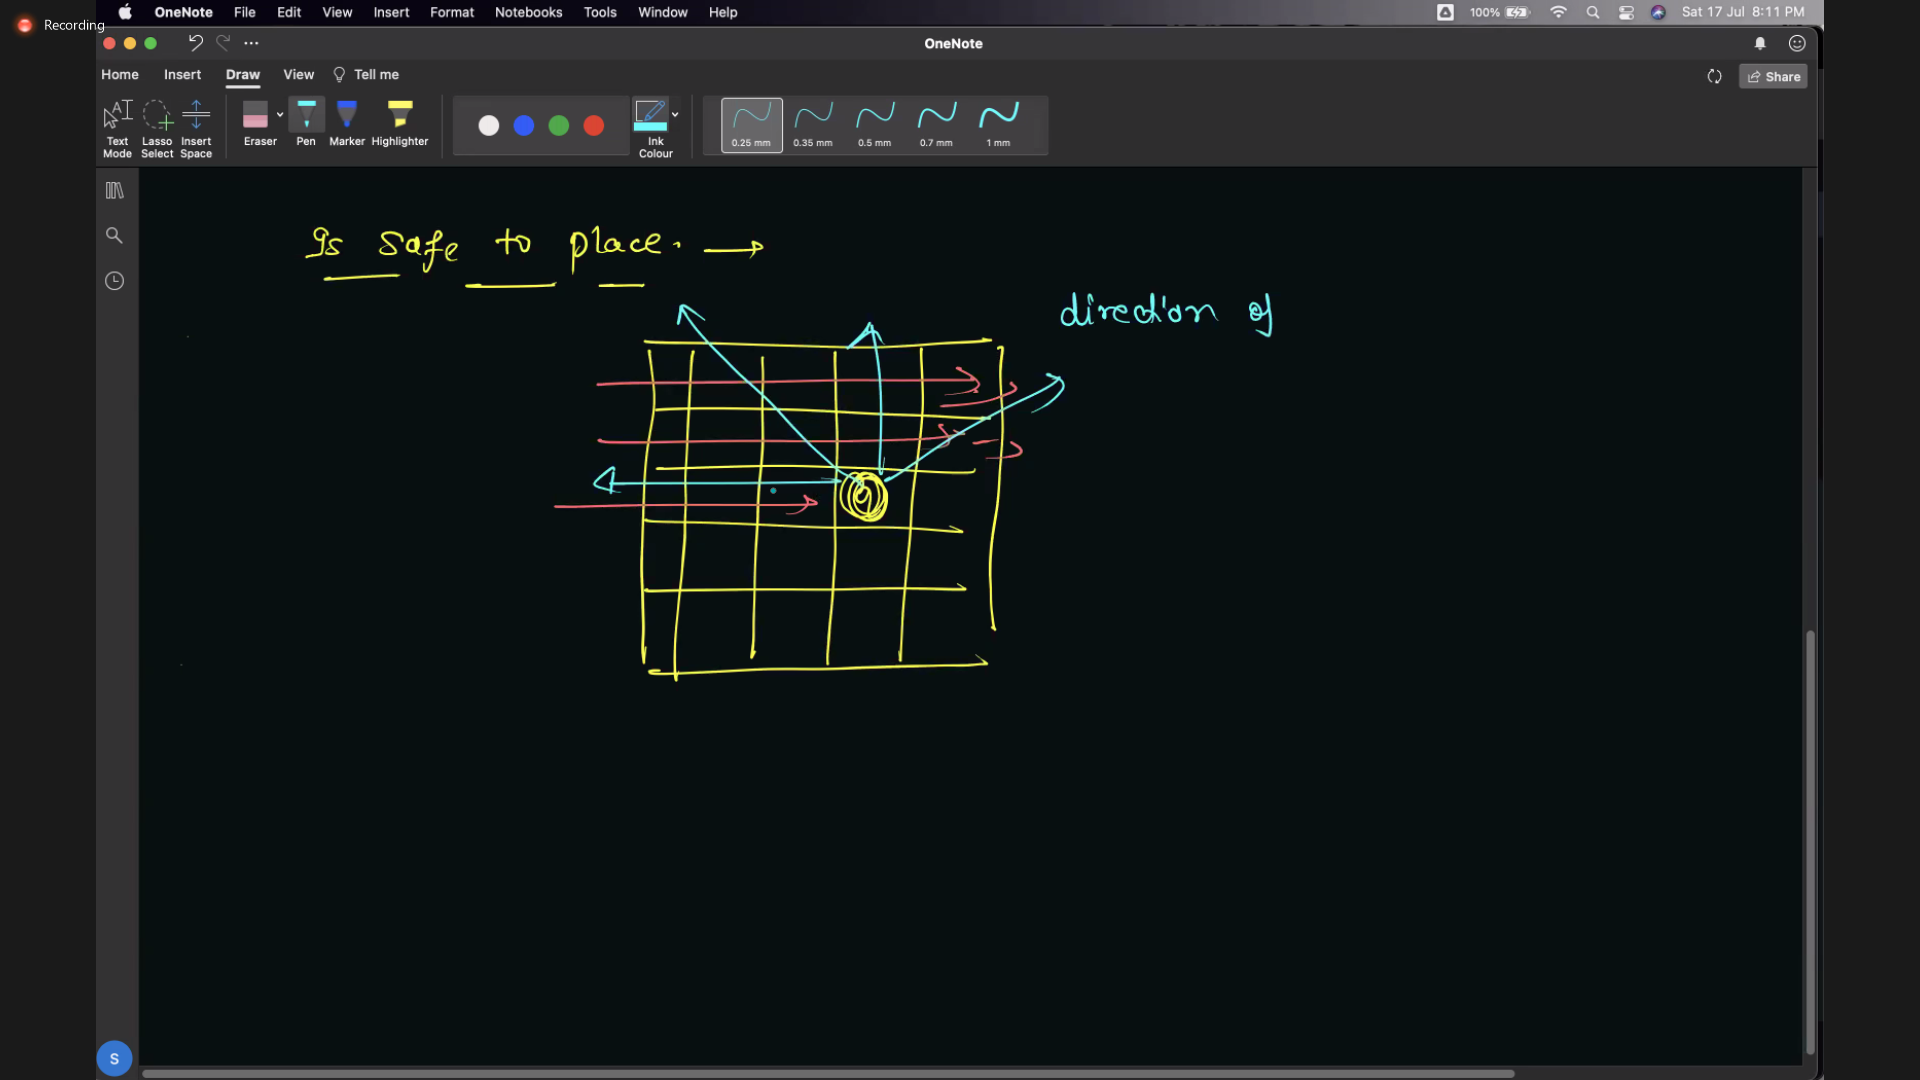 Recording
OneNote File Edit View Insert Format Notebooks Tools Window Help 100% Sat 17 Jul 8:11 PM
OneNote
Home Insert Draw View Tell me Share
Text Mode Lasso Select Insert Space Eraser Pen Marker Highlighter Ink Colour 0.25 mm 0.35 mm 0.5 mm 0.7 mm 1 mm
Is safe to place. →
direction of
S